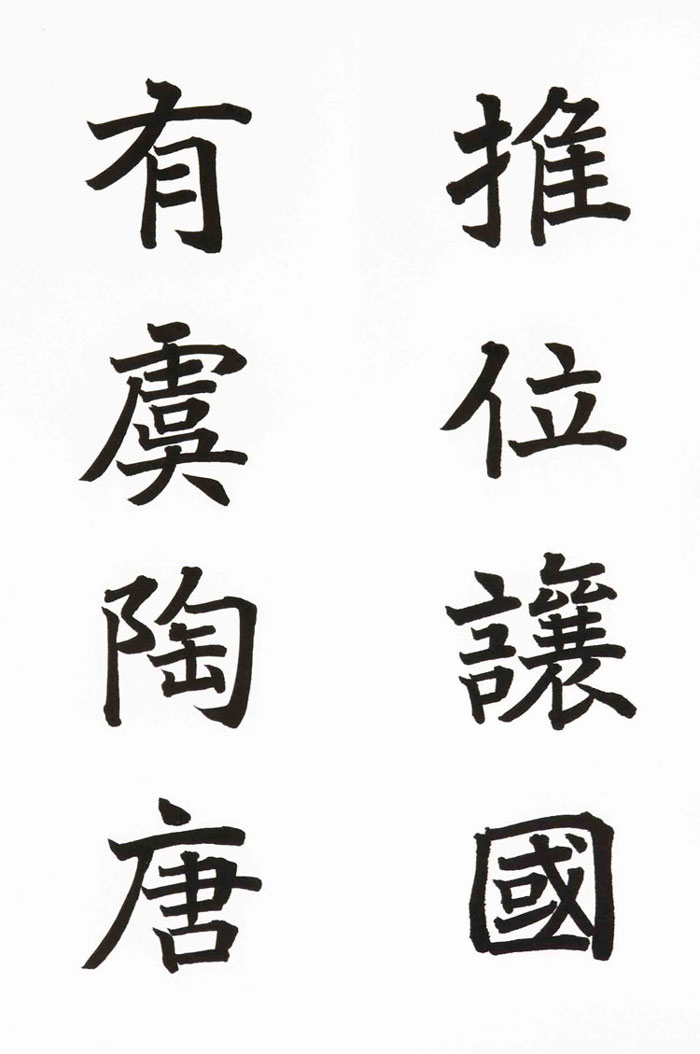 推位讓國
有虞陶唐